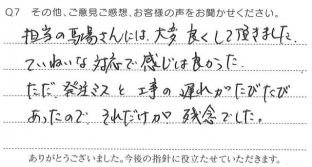 Q7 その他、ご意見ご感想、お客様の声をお聞かせください。
担当の馬場さんには、大変良くして頂きました。
ていねいな対応で感じは良かった。
ただ、発注ミスと工事の遅れがたびたび
あったので、それだけが残念でした。
ありがとうございました。今後の指針に役立たせていただきます。